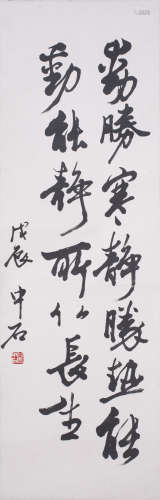 勤勝寒靜勝熱能
勤能靜所以長生
戊辰申石